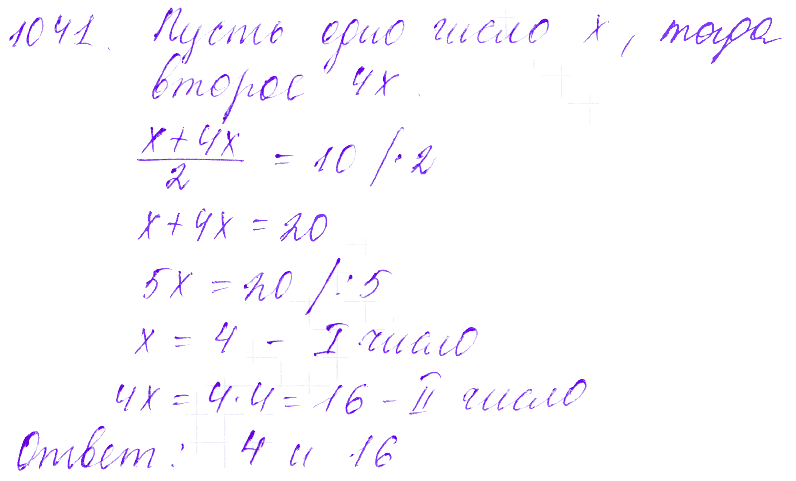 1041. Пусть одно число x, тогда
второе 4x.
(x+4x)/2 = 10 /·2
x+4x = 20
5x = 20 /:5
x = 4 - I число
4x = 4·4 = 16 - II число
Ответ: 4 и 16